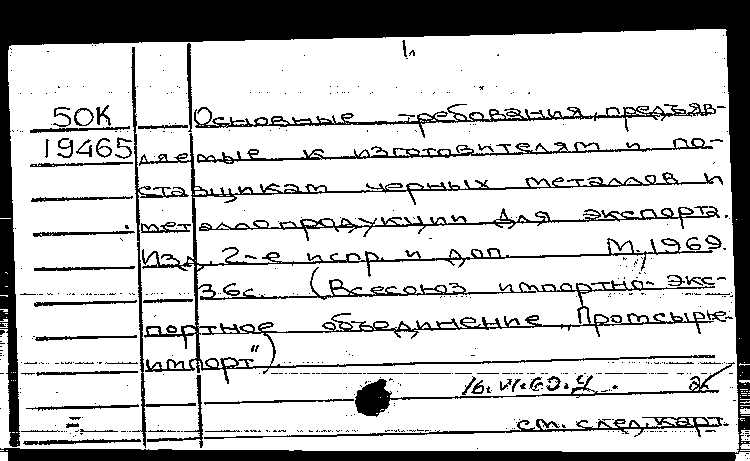 1.
50К Основные требования, предъяв-
19465 ляемые к изготовителям и по-
ставщикам черных металлов и
металлопродукции для экспорта.
Изд. 2-е испр. и доп. М., 1969.
36с. (Всесоюз импортно-экс-
портное объединение „Промсырье-
импорт")
16.VI.69.
см. след. карт.